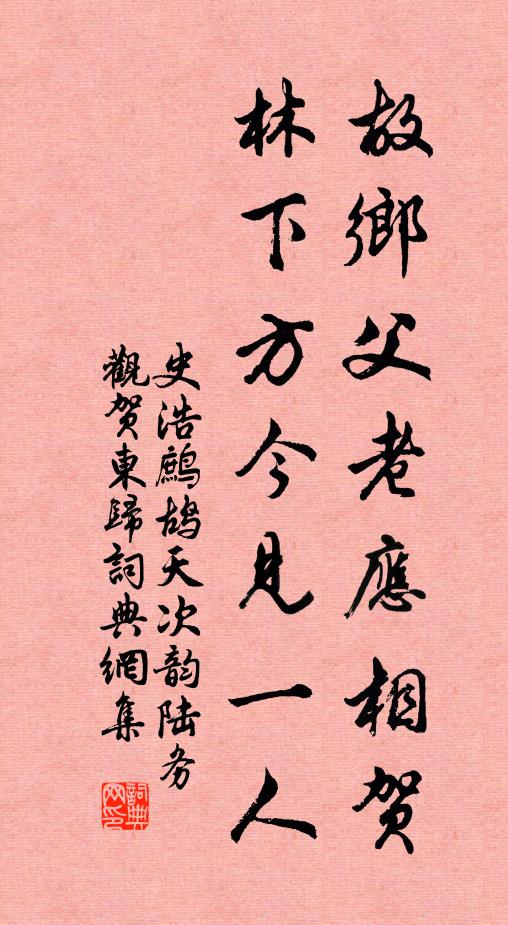 故鄉父老應相賀
林下方今見一人
史浩鷓鴣天次韵陆务
觀贺東歸詞典網集
詞典网印